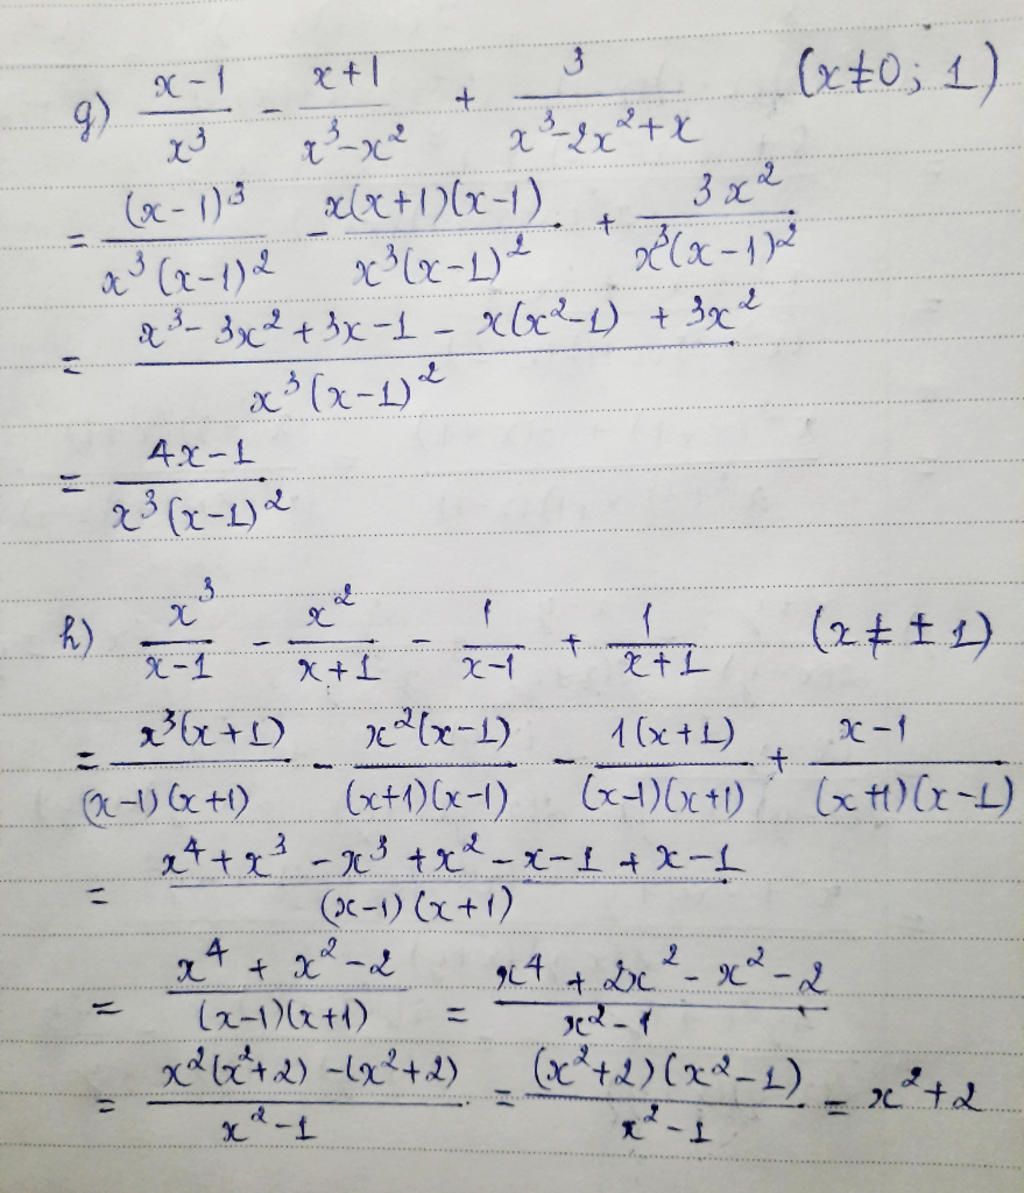 g) \frac{x-1}{x^3} - \frac{x+1}{x^3-x^2} + \frac{3}{x^3-2x^2+x} (x≠0; 1)
= \frac{(x-1)^3}{x^3(x-1)^2} - \frac{x(x+1)(x-1)}{x^3(x-1)^2} + \frac{3x^2}{x^3(x-1)^2}
= \frac{x^3-3x^2+3x-1-x(x^2-1)+3x^2}{x^3(x-1)^2}
= \frac{4x-1}{x^3(x-1)^2}
h) \frac{x^3}{x-1} - \frac{x^2}{x+1} - \frac{1}{x-1} + \frac{1}{x+1} (x≠±1)
= \frac{x^3(x+1)}{(x-1)(x+1)} - \frac{x^2(x-1)}{(x+1)(x-1)} - \frac{1(x+1)}{(x-1)(x+1)} + \frac{x-1}{(x+1)(x-1)}
= \frac{x^4+x^3-x^3+x^2-x-1+x-1}{(x-1)(x+1)}
= \frac{x^4+x^2-2}{(x-1)(x+1)} = \frac{x^4+2x^2-x^2-2}{x^2-1}
= \frac{x^2(x^2+2)-(x^2+2)}{x^2-1} = \frac{(x^2+2)(x^2-1)}{x^2-1} = x^2+2